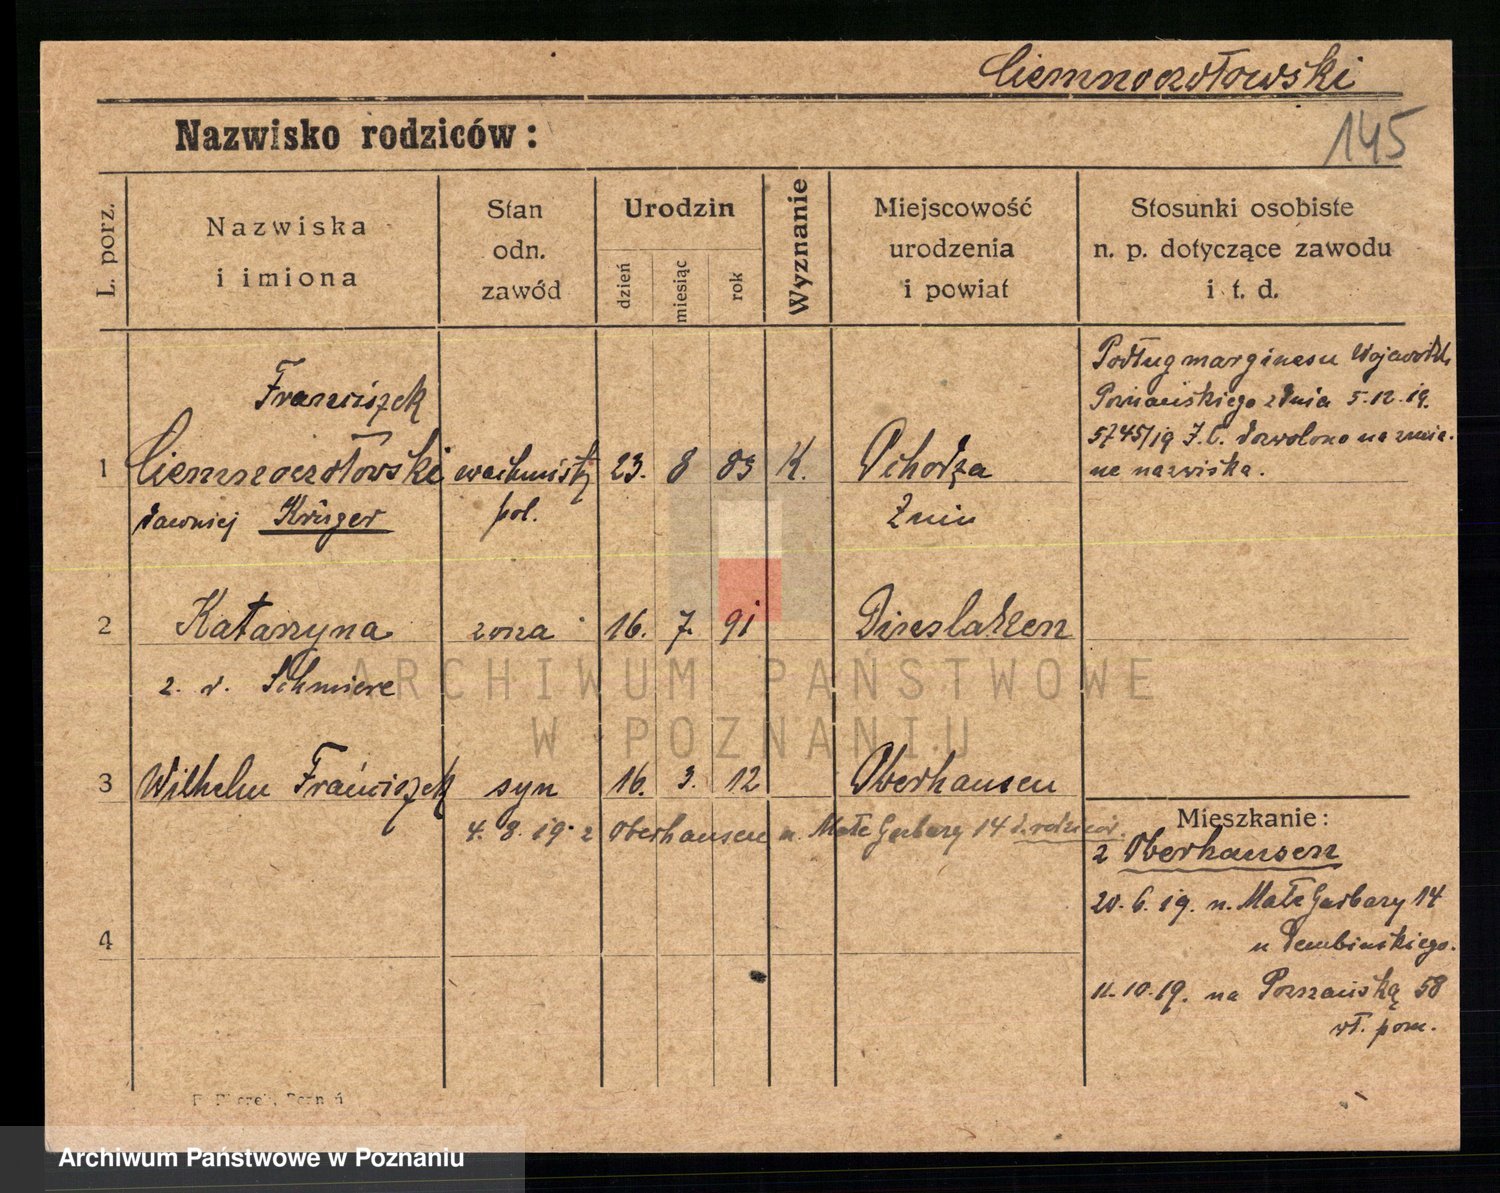 Ciemnoczołowski
145
Nazwisko rodziców:
L. porz.
Nazwiska
i imiona
Stan
odn.
zawód
Urodzin
dzień
miesiąc
rok
Wyznanie
Miejscowość
urodzenia
i powiat
Stosunki osobiste
n. p. dotyczące zawodu
i t. d.
Podług marginesu Wojewódz.
Poznańskiego z dnia 5.12.19.
5745/19 J.C. dozwolono na zmia-
nę nazwiska.
Franciszek
1 Ciemnoczołowski wachmistrz 23. 8 83 K. Ochodza
dawniej Krüger pol. Żnin
2 Katarzyna żona 16. 7. 91 Dinslaken
z. d. Schmiere
3 Wilhelm Franciszek syn 16. 3. 12 Oberhausen
4. 8. 19. z Oberhausen n. Małe Garbary 14 d. rodziców.
4
Mieszkanie:
z Oberhausen
20. 6. 19. n. Małe Garbary 14
u Dembińskiego.
11. 10. 19. na Poznańską 58
wł. pom.
ARCHIWUM PAŃSTWOWE
W POZNANIU
Archiwum Państwowe w Poznaniu